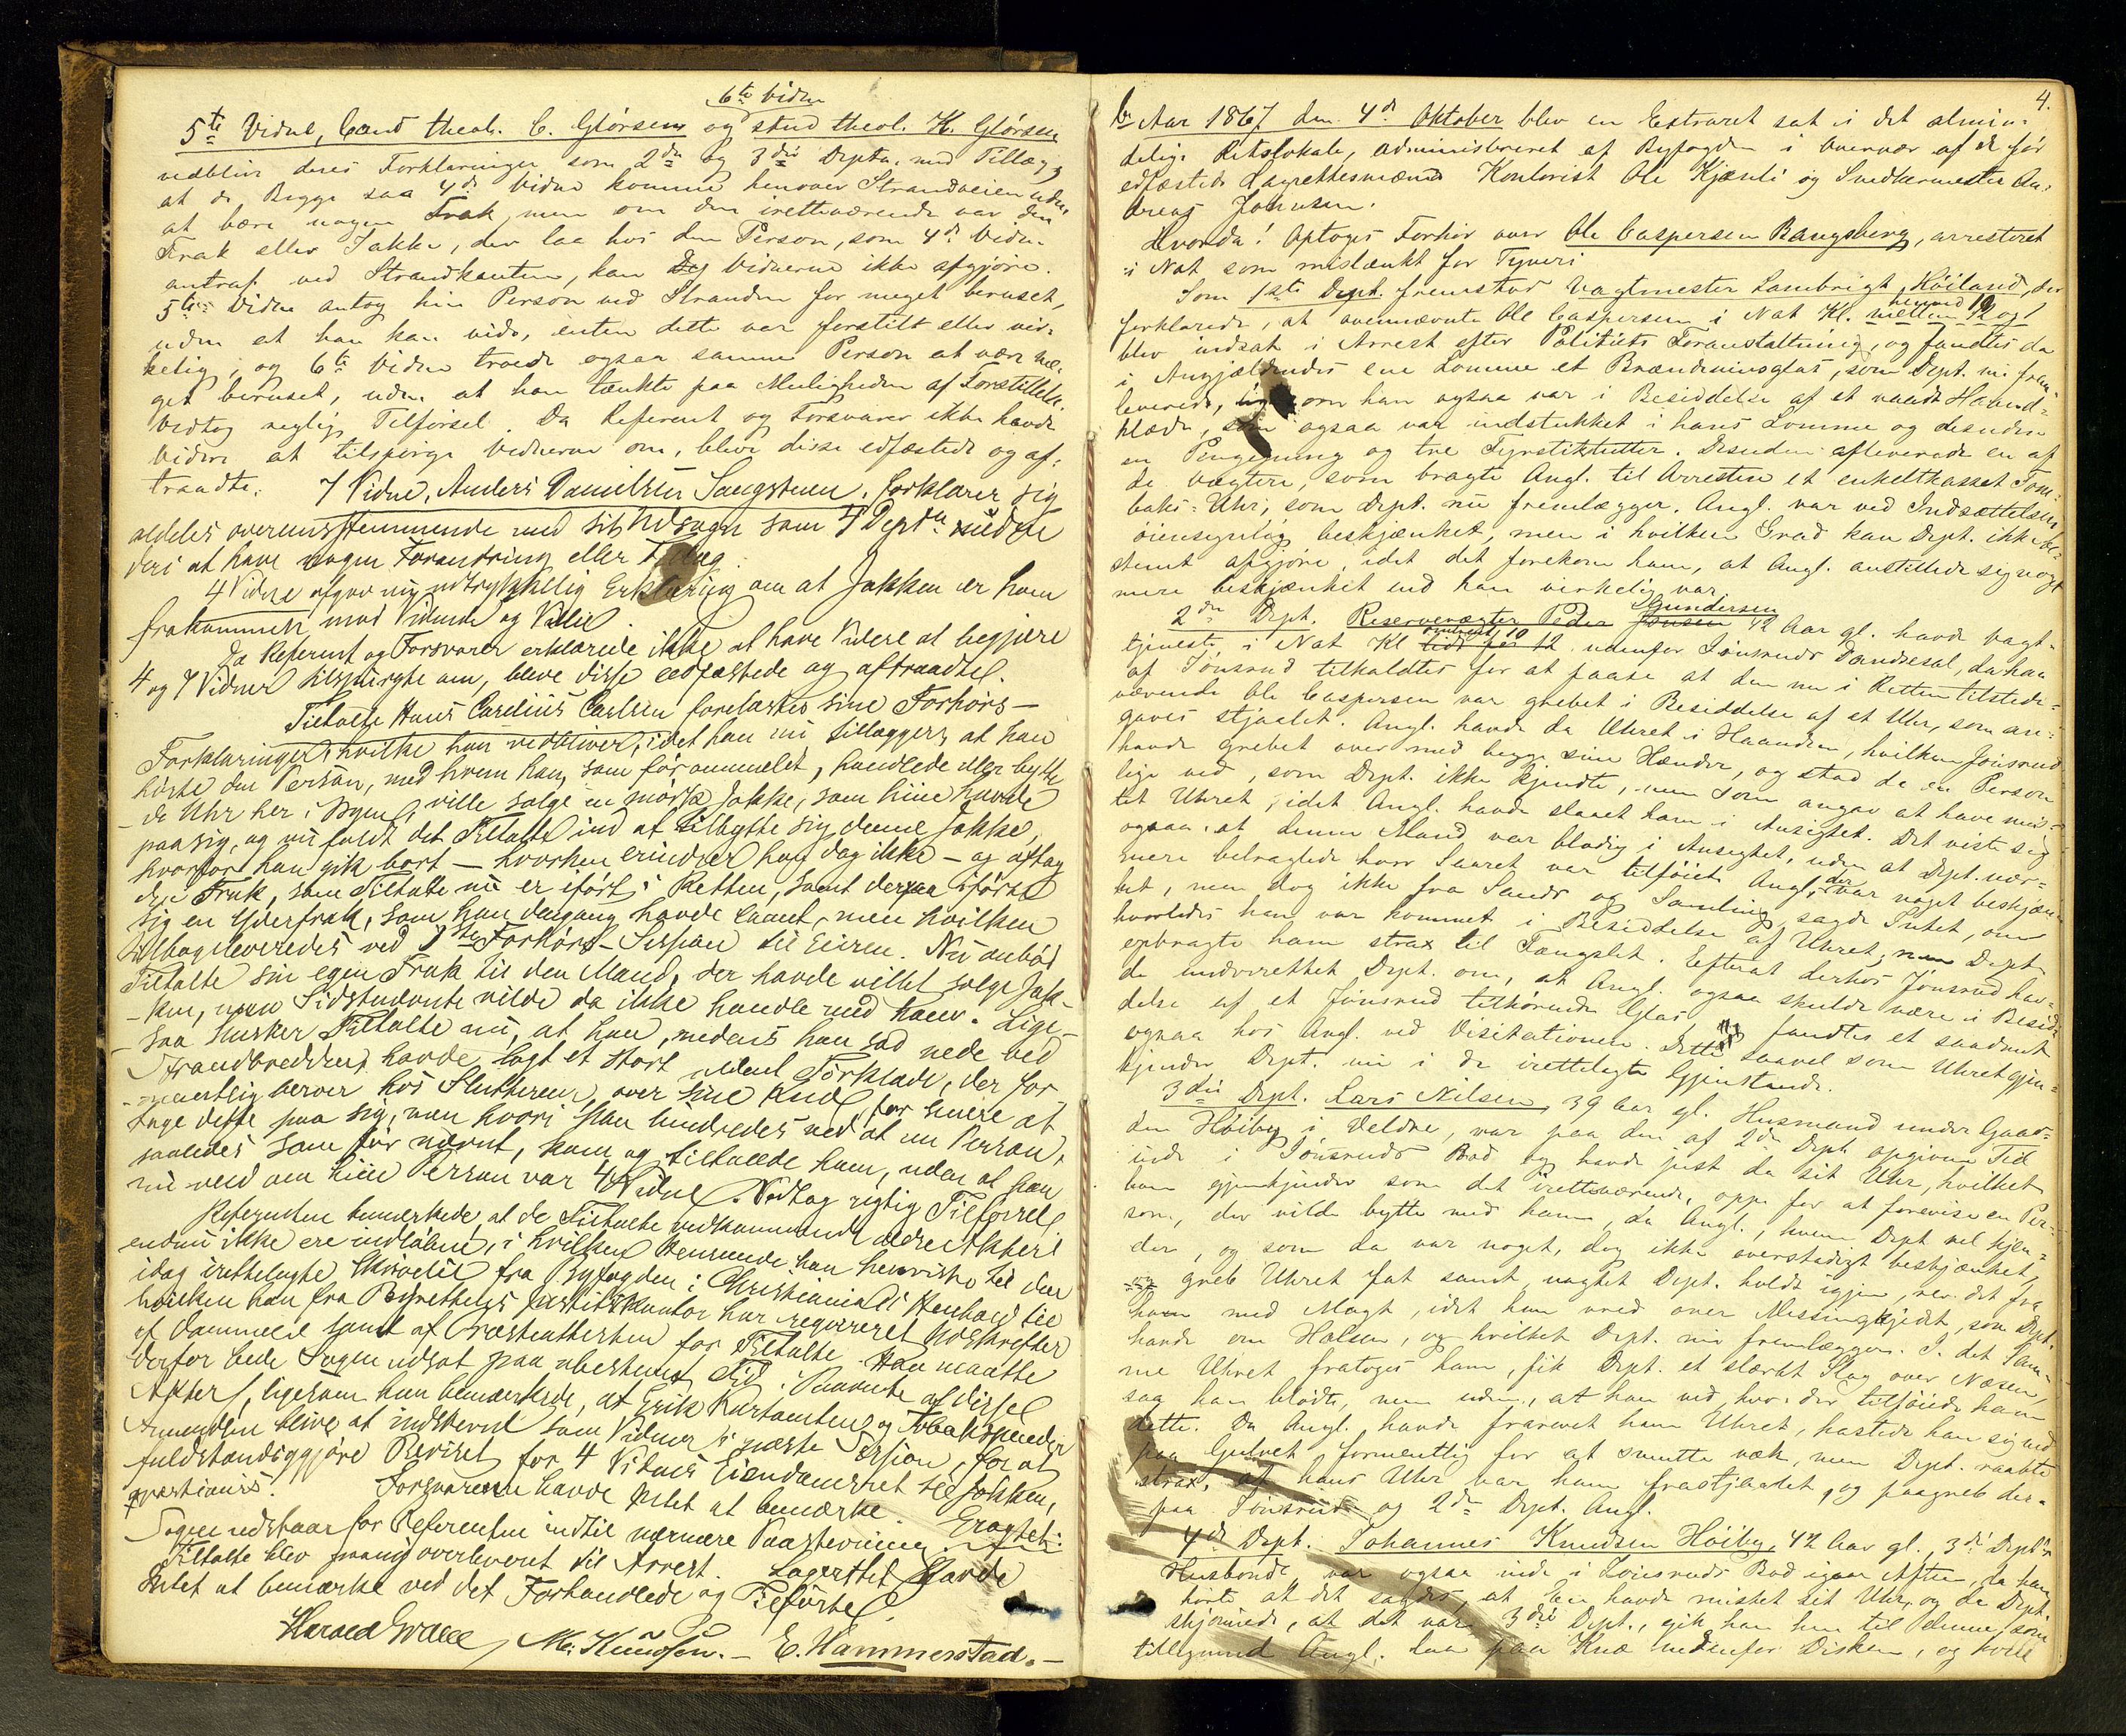 6te Vidne
5te Vidne, Cand theol. C. Glörsen og stud theol. K. Glörsen
vedbliver deres Forklaringer som 2den og 3die Dpta. med Tillæg,
at de Begge saa 4de Vidne komme henover Strandveien uden
at bære nogen Frak, men om den iretteværende var den
Frak eller Jakke, der laa hos den Person, som 4de Vidne
antraf ved Strandkanten, kan Vidnerne ikke afgjøre.
5te Vidne antog hin Person ved Stranden for meget beruset,
uden at han kan vide, enten dette var forstilt eller vir-
kelig, og 6te Vidne troede ogsaa samme Person at være me-
get beruset, uden at han tænkte paa Muligheden af Forstillelse.
Vedtog rigtig Tilførsel. Da Referent og Forsvarer ikke havde
videre at tilspørge Vidnerne om, bleve disse edfæstede og af-
traadte. 7 Vidne, Anders Danielsen Sangstuen, forklarer sig
aldeles overensstemmende med sit Udsagn som 4 Dept uden
deri at have nogen Forandring eller Tillæg.
4 Vidne afgav ny udtrykkelig Erklæring om at Jakken er ham
frakommen mod Vidende og Villie.
Da Referent og Forsvarer erklærede ikke at have Videre at begjære
4 og 7 Vidner tilspurgte om, bleve disse eedfæstede og aftraadte.
Tiltalte Hans Carelius Carlsen forelæstes sine Forhørs-
Forklaringer, hvilke han vedbliver, idet han nu tillægger, at han
hørte den Person, med hvem han, som før ommeldt, handlede eller bytte-
de Uhr her i Byen, ville sælge en mørk Jakke, som hine havde
paa sig, og nu faldt det Tiltalte ind at tilbytte sig denne Jakke,
hvorfor han gik bort – hvorhen erindrer han dog ikke – og aftog
den Frak, som Tiltalte nu er iført i Retten, samt derpaa iførte
sig en Yderfrak, som han dengang havde laant, men hvilken
tilbageleveredes ved 1ste Forhørs-Session til Eieren. Nu anbød
Tiltalte sin egen Frak til den Mand, der havde villet sælge Jak-
ken, men Sidstnævnte vilde da ikke handle med ham. Lige-
saa husker Tiltalte nu, at han, medens han sad nede ved
Strandbredden, havde lagt et stort uldent Tørklæde, der for-
mentlig beroer hos Slutteren, over sine Knæ, for senere at
tage dette paa sig, men hvori han hindredes ved at en Person,
saaledes som før nævnt, kom og tiltalede ham, uden at han
nu veed om hiin Person var 4 Vidne. Vedtog rigtig Tilførsel.
Referenten bemærkede, at de Tiltalte vedkommende ældre Akter
endnu ikke ere indløbne, i hvilken Henseende han henviste til den
idag irettelagte Skrivelse fra Byfogden i Christiania i Henhold til
hvilken han fra Byrettens Justitskontor har requireret Udskrifter
af Dommene samt af Præsteattesten for Tiltalte. Han maatte
derfor bede Sagen udsat paa ubestemt Tid i Paavente af disse
Akter, ligesom han bemærkede, at Erik Karstensen og
Amundsen blive at indstevne som Vidner i næste Session, for at
fuldstændiggjøre Beviset for 4 Vidnes Eiendomsret til Jakken,
qvæstionis. Forsvareren havde Intet at bemærke. Eragtet:
Sagen udstaar for Referenten indtil nærmere Paastevning.
Tiltalte blev paany overleveret til Arrest. Lagrettet havde
Intet at bemærke ved det Forhandlede og Tilførte.
M. Knudsen. – E. Hammerstad. –
4.
Aar 1867 den 4de Oktober blev en Extraret sat i det almin-
delige Retslokale, administreret af Byfogden i Overvær af de før
edfæstede Lagrettesmænd Kontorist Ole Kjænli og Snedkermester An-
dreas Johnsen.
Hvorda! Optoges Forhør over Ole Caspersen Bangsberg, arresteret
i Nat som mistænkt for Tyveri
Som 1ste Dept. fremstod Vagtmester Lambrigt Høiland, der
henved 10
forklarede, at ovennævnte Ole Caspersen i Nat Kl. mellem 12 og 1
blev indsat i Arrest efter Politiets Foranstaltning, og fandtes da
i Angjældendes ene Lomme et Brændevinsglas, som Dept. nu frem-
leverede, ligesom han ogsaa var i Besiddelse af et vaadt Haand-
klæde, som ogsaa var indstukket i hans Lomme og desuden
en Pengepung og tre Fyrstikfutter. Desuden afleverede en af
de Vægtere, som bragte Angl. til Arresten et enkeltkasset Tom-
baks-Uhr, som Dept. nu fremlægger. Angl. var ved Indsættelsen
øiensynlig beskjænket, men i hvilken Grad kan Dept. ikke be-
stemt afgjøre, idet det forekom ham, at Angl. anstillede sig noget
mere beskjænket end han virkelig var.
Gundersen
2den Dept. Reservevægter Peder Jensen 42 Aar gl. havde Vagt-
omtrent 10
tjeneste i Nat Kl lidt før 12 udenfor Jønsruds Dandsesal, da han
af Jønsrud tilkaldtes for at paase at den nu i Retten tilstede-
værende Ole Caspersen var grebet i Besiddelse af et Uhr, som an-
gaves stjaalet. Angl. havde da Uhret i Haanden, hvilken Jønsrud
havde grebet over med begge sine Hænder, og stod da en Person
lige ved, som Dept. ikke kjendte, men som angav at have mis-
tet Uhret, idet Angl. havde slaaet ham i Ansigtet. Det viste sig
ogsaa, at denne Mand var blodig i Ansigtet, uden at Dept. nær-
mere betragtede hvor Saaret var tilføiet. Angl., der var noget beskjæn-
ket, men dog ikke fra Sands og Samling, sagde Intet, om
hvorledes han var kommet i Besiddelse af Uhret, men Dept
opbragte ham strax til Fængslet. Efterat derhos Jønsrud hav-
de underrettet Dept. om, at Angl. ogsaa skulde være i Besid-
delse af et Jønsrud tilhørende Glas, fandtes et saadant
ogsaa hos Angl. ved Visitationen. Dette saavel som Uhret gjen-
kjender Dept. nu i de irettelagte Gjenstande.
3die Dept. Lars Nilsen, 39 Aar gl. Husmand under Gaar-
den Høiby i Veldre, var paa den af 2den Dept opgivne Tid
inde i Jønsruds Bod og havde just da sit Uhr, hvilket
han gjenkjender som det iretteværende, oppe for at forevise en Per-
son, der vilde bytte med ham, da Angl., hvem Dept vel kjen-
der, og som da var noget, dog ikke overstadigt beskjænket,
greb Uhret fat samt, uagtet Dept. holdt igjen, rev det fra
ham med Magt, idet han vred over Messingkjedet, som Dept.
havde om Halsen, og hvilket Dept. nu fremlægger. I det Sam-
me Uhret fratoges ham, fik Dept. et stærkt Slag over Næsen,
saa han blødte, men uden, at han ved, hvo der tilføiede ham
dette. Da Angl. havde frarevet ham Uhret, kastede han sig ned
paa Gulvet, formentlig for at smutte væk, men Dept. raabte
strax, at hans Uhr var ham frastjaalet, og paagreb der-
paa Jønsrud og 2den Dept. Angl.
4de Dept. Johannes Knudsen Høiby, 42 Aar gl., 3die Dept's
Husbonde, var ogsaa inde i Jønsruds Bod igaar Aften, da han
hørte at det sagdes, at En havde mistet sit Uhr, og da Dept.
skjønnede, at det var 3die Dept., gik han hen til denne, som
tilligemed Angl. laa paa Knæ nedenfor Disken, og holdt